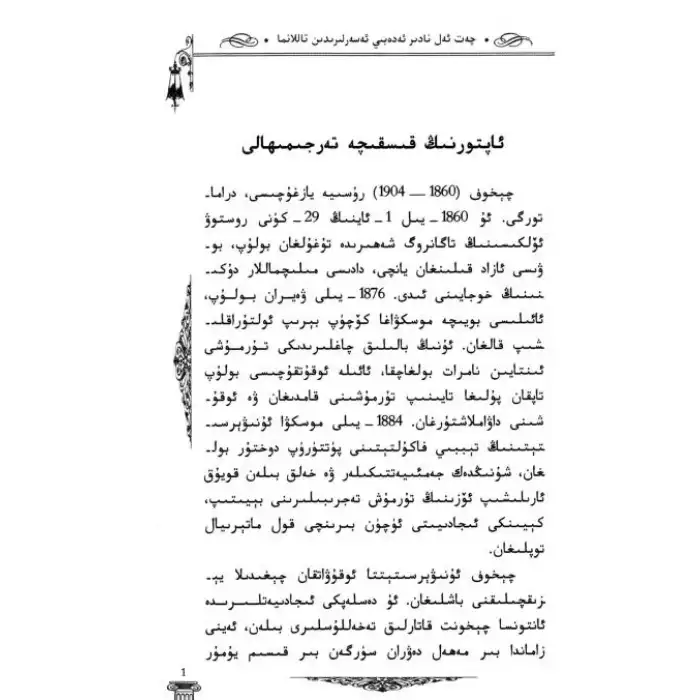 چەت ئەل نادىر ئەدەبىي ئەسەرلىرىدىن تاللانما
ئاپتورنىڭ قىسقىچە تەرجىمىھالى
چېخوف (1860 — 1904) رۇسىيە يازغۇچىسى، دراما-
تورگى. ئۇ 1860 - يىل 1 - ئاينىڭ 29 - كۈنى روستوۋ
ئۆلكىسىنىڭ تاگانروگ شەھىرىدە تۇغۇلغان بولۇپ، بو-
ۋىسى ئازاد قىلىنغان يانچى، دادىسى مىلىچماللار دۇكى-
نىنىڭ خوجايىنى ئىدى. 1876 - يىلى ۋەيران بولۇپ،
ئائىلىسى بويىچە موسكۋاغا كۆچۈپ بېرىپ ئولتۇراقلى-
شىپ قالغان. ئۇنىڭ بالىلىق چاغلىرىدىكى تۇرمۇشى
ئىنتايىن نامرات بولغاچقا، ئائىلە ئوقۇتقۇچىسى بولۇپ
تاپقان پۇلىغا تايىنىپ تۇرمۇشىنى قامدىغان ۋە ئوقۇ-
شىنى داۋاملاشتۇرغان. 1884 - يىلى موسكۋا ئۇنىۋېرسى-
تېتىنىڭ تېببىي فاكۇلتېتىنى پۈتتۈرۈپ دوختۇر بول-
غان، شۇنىڭدەك جەمئىيەتتىكىلەر ۋە خەلق بىلەن قويۇق
ئارىلىشىپ ئۆزىنىڭ تۇرمۇش تەجرىبىلىرىنى بېيىتىپ،
كېيىنكى ئىجادىيىتى ئۈچۈن بىرىنچى قول ماتېرىيال
توپلىغان.
چېخوف ئۇنىۋېرسىتېتتا ئوقۇۋاتقان چېغىدىلا يې-
زىقچىلىقنى باشلىغان. ئۇ دەسلەپكى ئىجادىيەتلىرىدە
ئانتونسا چېخونت قاتارلىق تەخەللۇسلىرى بىلەن، ئەينى
زاماندا بىر مەھەل دەۋران سۈرگەن بىر قىسىم يۇمۇر
1